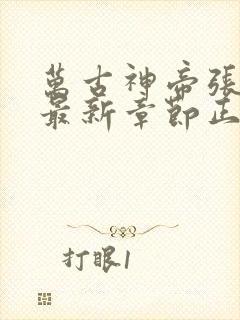 萬古神帝張
最新章節正
打眼1